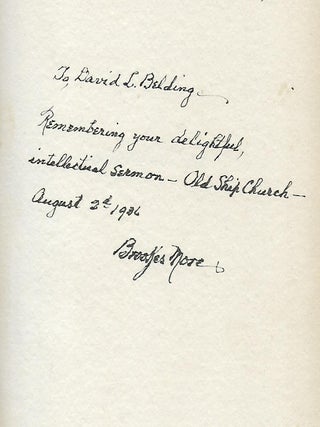 To, David L. Belding
Remembering your delightful,
intellectual Sermon – Old Ship Church –
August 2d 1936
Brookes More